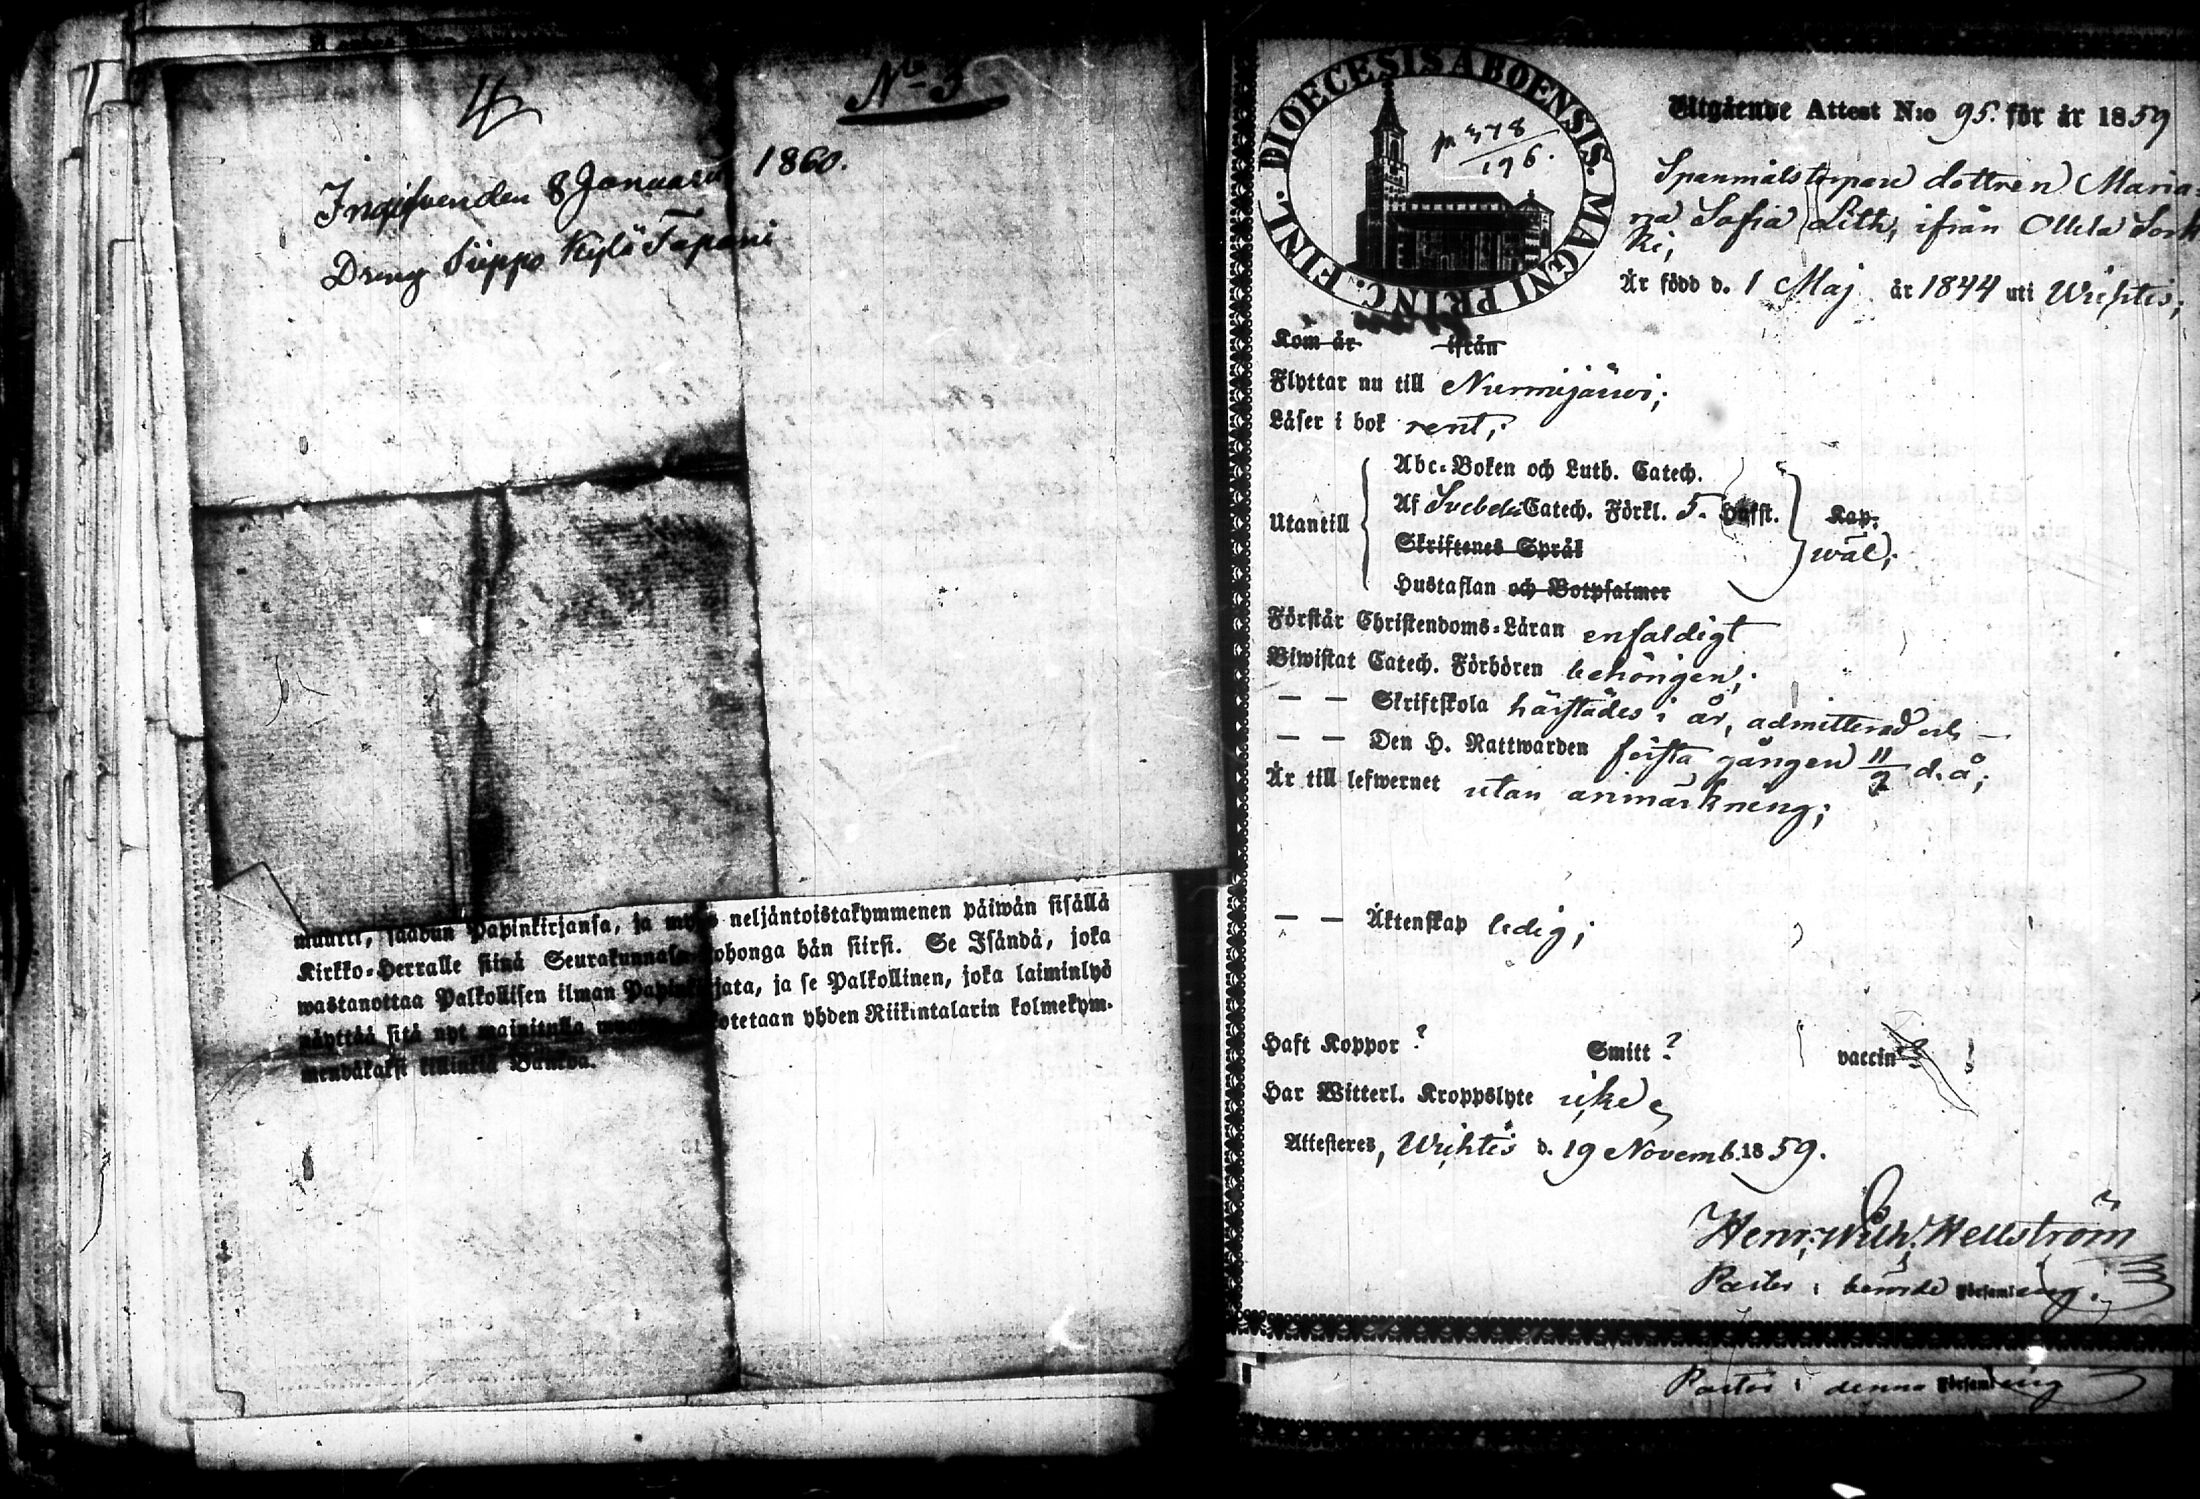 4
No 3
Ingifven den 8 Januari 1860.
Dreng Seppo Kylä Tapani
muutti, saadun Papinkirjansa, ja myös neljäntoistakymmenen päiwän sisällä
Kirkko-Herralle siinä Seurakunnasa johonga hän siirsi. Se Isändä, joka
wastanottaa Palkollisen ilman Papinkirjata, ja se Palkollinen, joka laiminlyö
näyttää sitä nyt mainitulla otetaan yhden Riikintalarin kolmekym-
mendäkaksi killinkiä Bankoa.
FINL. DIOECESIS ABOENSIS. MAGNI PRINC.
p 378
196.
Utgående Attest N:o 95. för år 1859
Spanmålstorpare dottren Maria-
na Sofia Lith, ifrån Ollila Sork
ki,
Är född d. 1 Maj år 1844 uti Wichtis;
Kom år ifrån
Flyttar nu till Nurmijärwi;
Läser i bok rent;
Utantill
Abc-Boken och Luth. Catech.
Af Svebeli Catech. Förkl. 5. Hufst.
Skriftenes Språk
Hustaflan och Botpsalmer
Kap.
wäl;
Förstår Christendoms-Läran enfaldigt
Biwistat Catech. Förhören behörigen;
— — Skriftskola härstädes i år, admitterad och —
— — Den H. Nattwarden första gången 11/9 d. å;
Är till lefwernet utan anmärkning;
— — Äktenskap ledig;
Haft Koppor ? Smitt ? vaccin
Har Witterl. Kroppslyte icke
Attesteres, Wichtis d. 19 Novemb. 1859.
Henr. Wilh. Hellström
Pastor i berörde Församling.
Pastor i denna Församling